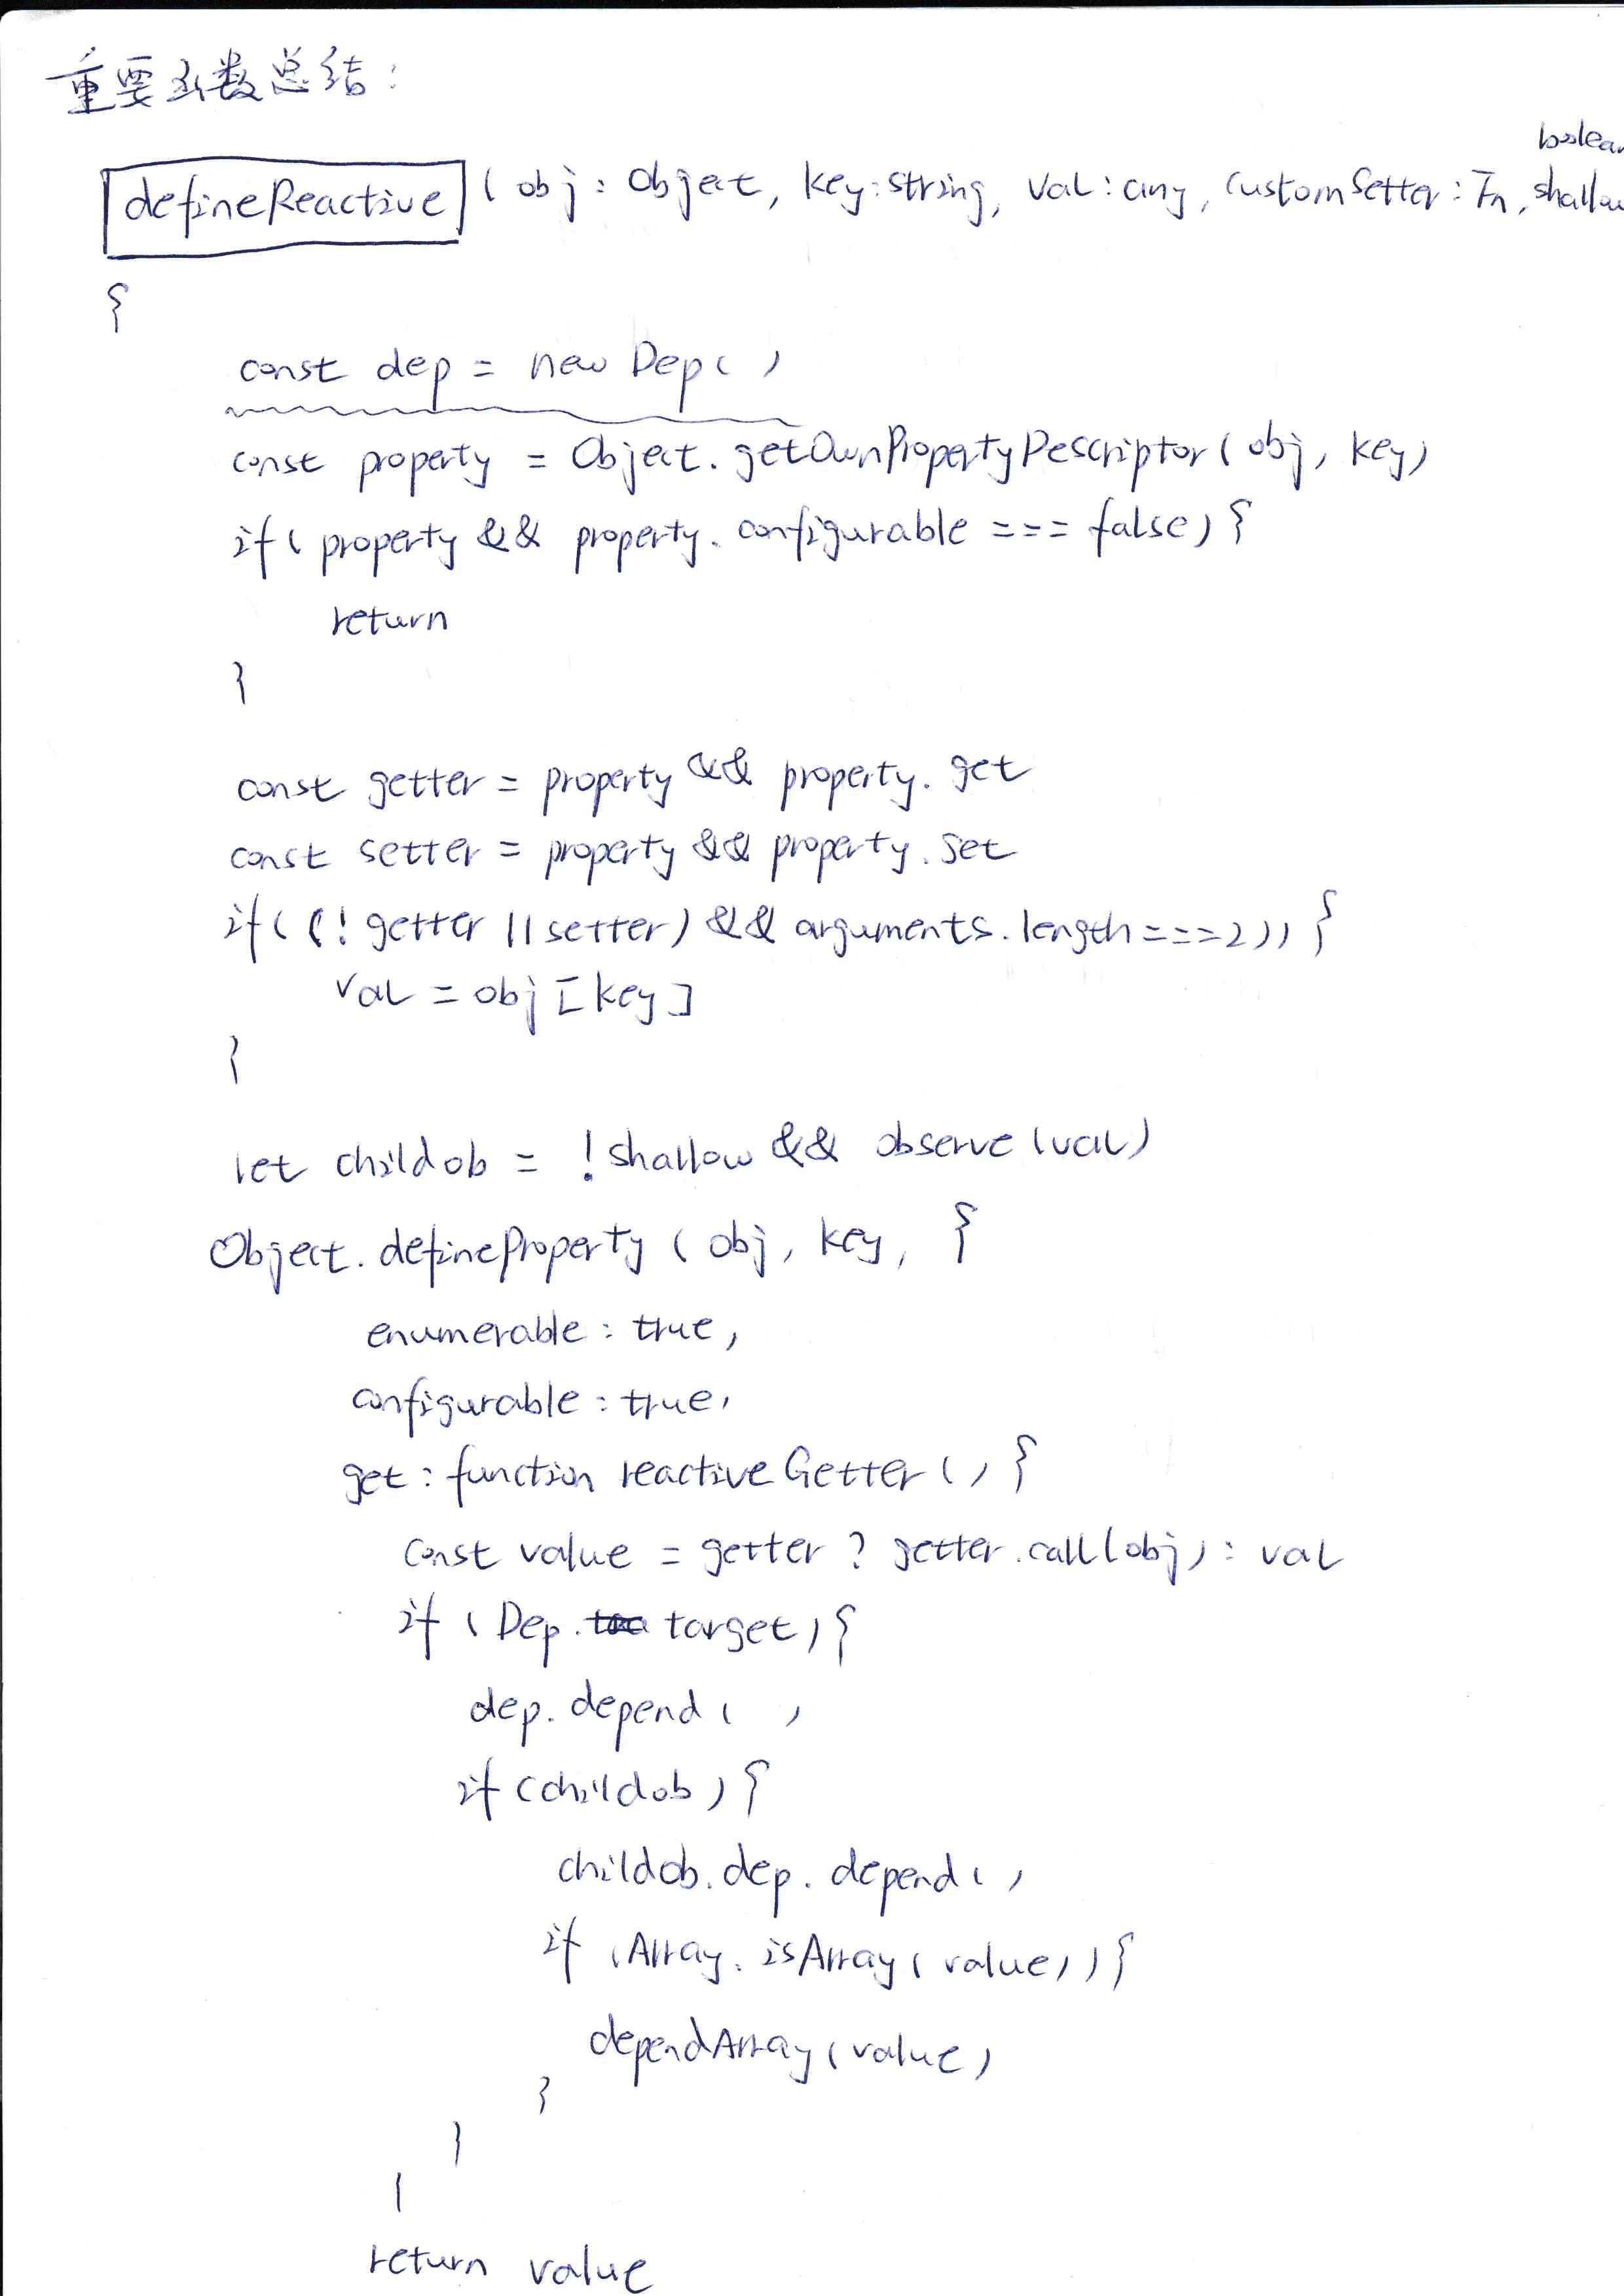 重要函数总结:
boolean
defineReactive ( obj : Object, key : string, val : any, customSetter : Fn, shallow
{
const dep = new Dep( )
const property = Object.getOwnPropertyDescriptor( obj, key)
if( property && property.configurable === false) {
return
}
const getter = property && property.get
const setter = property && property.set
if( (! getter || setter) && arguments.length === 2)) {
val = obj [key]
}
let childob = !shallow && observe (val)
Object.defineProperty ( obj, key, {
enumerable : true,
configurable : true,
get : function reactiveGetter ( ) {
const value = getter ? getter.call(obj) : val
if ( Dep. target) {
dep. depend ( )
if (childob) {
childob. dep. depend( )
if (Array. isArray ( value) ) {
dependArray (value)
}
}
}
return value